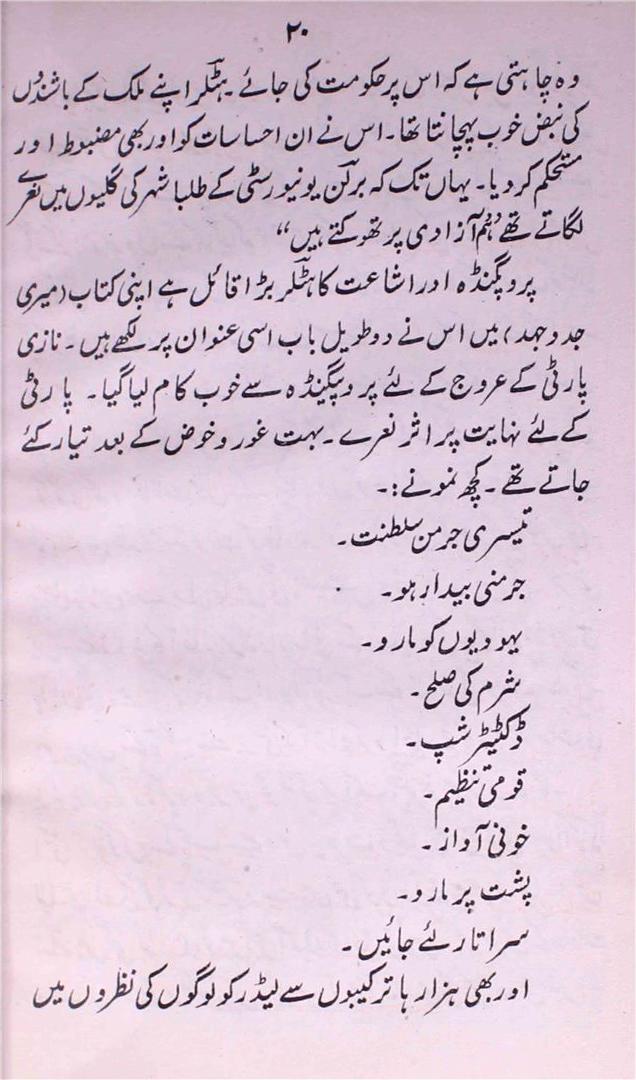 ۲۰
وہ چاہتی ہے کہ اس پر حکومت کی جائے۔ ہٹلر اپنے ملک کے باشندوں
کی نبض خوب پہچانتا تھا۔ اس نے ان احساسات کو اور بھی مضبوط اور
مستحکم کر دیا۔ یہاں تک کہ برلن یونیورسٹی کے طلبا شہر کی گلیوں میں نعرے
لگاتے تھے "ہم آزادی پر تھوکتے ہیں"
پروپگنڈہ اور اشاعت کا ہٹلر بڑا قائل ہے اپنی کتاب (میری
جدوجہد) میں اس نے دو طویل باب اسی عنوان پر لکھے ہیں۔ نازی
پارٹی کے عروج کے لئے پروپیگنڈہ سے خوب کام لیا گیا۔ پارٹی
کے لئے نہایت پر اثر نعرے۔ بہت غور و خوض کے بعد تیار کئے
جاتے تھے۔ کچھ نمونے:۔
تیسری جرمن سلطنت۔
جرمنی بیدار ہو۔
یہودیوں کو مارو۔
شرم کی صلح۔
ڈکٹیٹر شپ۔
قومی تنظیم۔
خونی آواز۔
پشت پر مارو۔
سر اتار لئے جائیں۔
اور بھی ہزارہا ترکیبوں سے لیڈر کو لوگوں کی نظروں میں